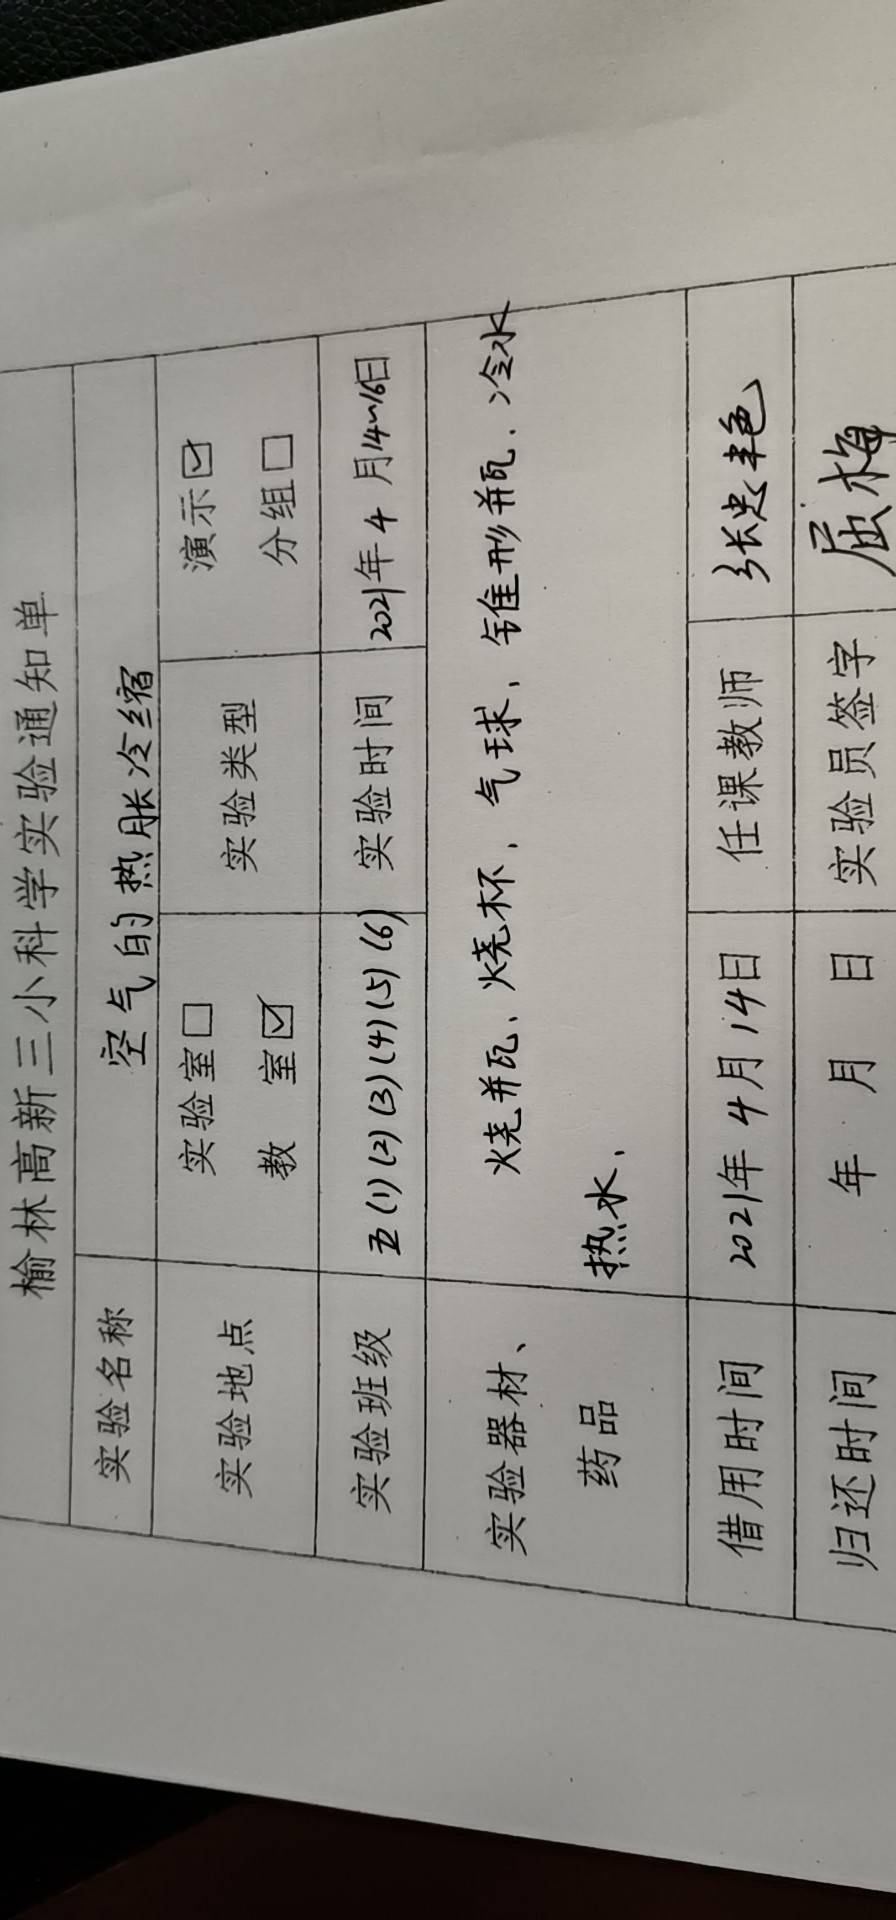 榆林高新三小科学实验通知单
实验名称 空气的热胀冷缩
实验地点 实验室□ 教 室☑ 实验类型 演示☑ 分组□
实验班级 五(1)(2)(3)(4)(5)(6) 实验时间 2021年4月14~16日
实验器材、药品 烧瓶、烧杯、气球、锥形瓶、冷水
热水、
借用时间 2021年4月14日 任课教师 张忠艳
归还时间 年 月 日 实验员签字 屈梅